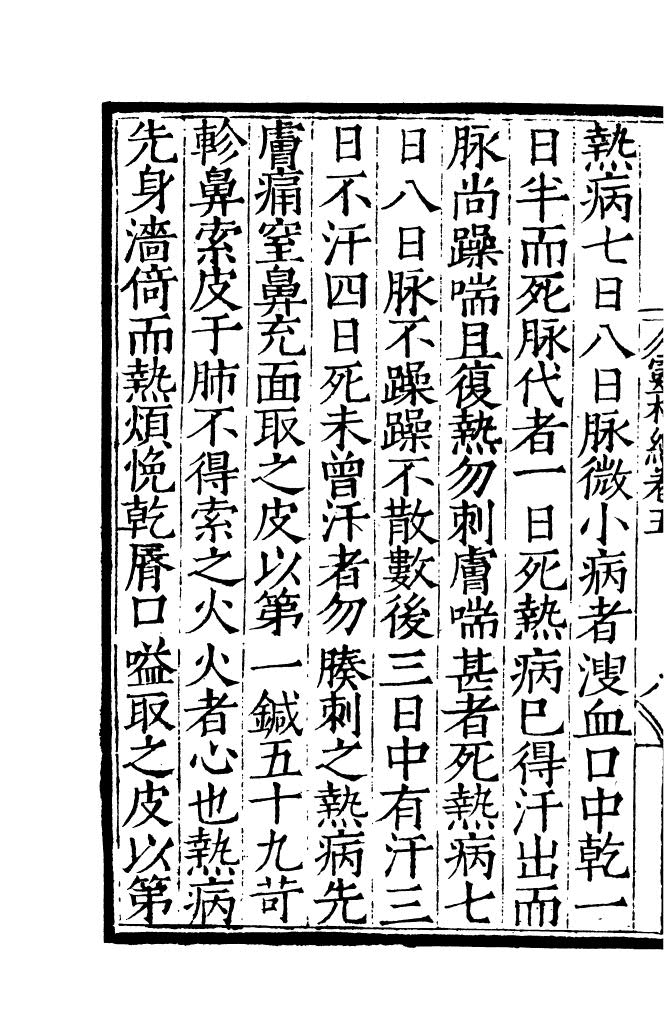 熱病七日八日脉微小病者溲血口中乾一
日半而死脉代者一日死熱病已得汗出而
脉尚躁喘且復熱勿刺膚喘甚者死熱病七
日八日脉不躁躁不散數後三日中有汗三
日不汗四日死未曾汗者勿腠刺之熱病先
膚痛窒鼻充面取之皮以第一鍼五十九苛
軫鼻索皮于肺不得索之火火者心也熱病
先身濇倚而熱煩悗乾脣口嗌取之皮以第